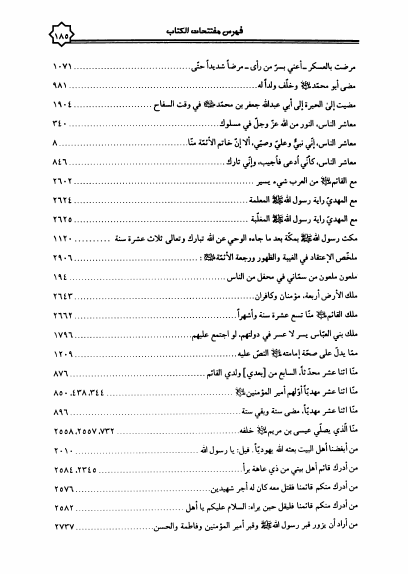 فهرس مفتتحات الكتاب
١٨٥
مرضت بالعسكر ـ أعني بسرّ من رأى ـ مرضاً شديداً حتّى ١٠٧١
مضى أبو محمّد وخلّف ولداً له ٩٨١
مضيت إلى الحيرة إلى أبي عبدالله جعفر بن محمّد في وقت السفاح ١٩٠٤
معاشر الناس، النور من الله عزّ وجلّ في مسلوك ٣٤٠
معاشر الناس، إنّي نبيّ وعليّ وصيّي، ألا إنّ خاتم الأئمّة منّا ٨
معاشر الناس، كأنّي أدعى فأجيب، وإنّي تارك ٨٤٦
مع القائم من العرب شيء يسير ٢٦٠٢
مع المهديّ راية رسول الله ﷺ المعلمة ٢٦٢٤
مع المهديّ راية رسول الله ﷺ المغلّبة ٢٦٢٥
مكث رسول الله ﷺ بمكّة بعد ما جاءه الوحي عن الله تبارك وتعالى ثلاث عشرة سنة ١١٢٠
ملخّص الإعتقاد في الغيبة والظهور ورجعة الأئمّة : ٢٩٠٦
ملعون ملعون من سمّاني في محفل من الناس ١٩٤
ملك الأرض أربعة، مؤمنان وكافران ٢٦٤٣
ملك القائم منّا تسع عشرة سنة وأشهراً ٢٦٦٢
ملك بني العبّاس يسر لا عسر في دولتهم، لو اجتمع عليهم ١٧٩٦
ممّا يدلّ على صحّة إمامته النصّ عليه ١٢٠٩
منّا اثنا عشر محدّثاً، السابع من [بعدي] ولدي القائم ٨٧٦
منّا اثنا عشر مهديّاً أوّلهم أمير المؤمنين ٣٤٤، ٤٣٨، ٨٥٠
منّا اثنا عشر مهديّاً، مضى ستة وبقي ستة ٨٩٦
منّا الّذي يصلّي عيسى بن مريم خلفه ٧٣٢، ٢٥٥٧، ٢٥٥٨
من أبغضنا أهل البيت بعثه الله يهوديّاً. قيل: يا رسول الله ٢٠١٠
من أدرك قائم أهل بيتي من ذي عاهة برأ ٢٣٤٥، ٢٥٨٤
من أدرك منكم قائمنا فقتل معه كان له أجر شهيدين ٢٥٧٦
من أدرك منكم قائمنا فليقل حين يراه: السلام عليكم يا أهل ٢٥٨٢
من أراد أن يزور قبر رسول الله ﷺ وقبر أمير المؤمنين وفاطمة والحسن ٢٧٣٧